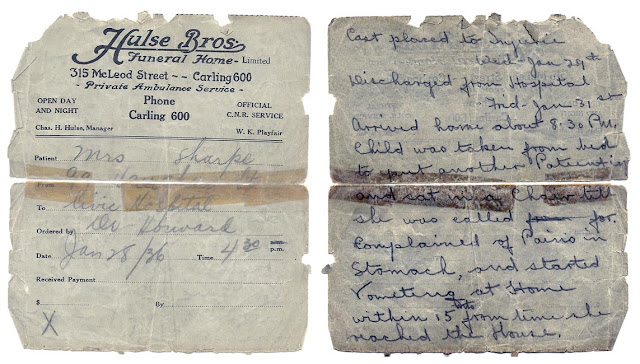 Hulse Bros.
Funeral Home - Limited
315 McLeod Street -- Carling 600
- Private Ambulance Service -
OPEN DAY
AND NIGHT
Phone
Carling 600
OFFICIAL
C.N.R. SERVICE
Chas. H. Hulse, Manager
W. K. Playfair
Patient Mrs Sharpe
From
To Civic Hospital
Ordered by Dr Howard
Date Jan 28/36 Time 4 30 p.m.
Received Payment
$ By
X
Cast placed to
Wed - Jan 29th
Discharged from Hospital
Frid - Jan 31st
Arrived home about 8.30 P.M.
Child was taken from bed
to put another Patient in
and sat in a Chair till
she was called for.
Complained of Pains in
Stomach, and started
Vometing at Home
within 15 from time she
reached the House.